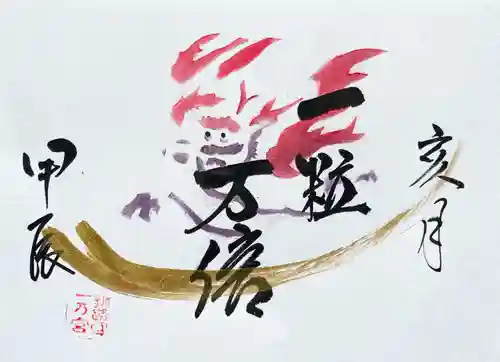 亥月
一粒
万倍
甲辰
一乃宮